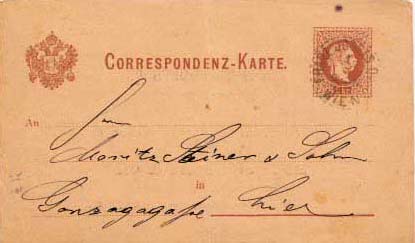 CORRESPONDENZ-KARTE.
WIEN
An
Moritz Steiner & Sohn
in
Gonzagagasse hier